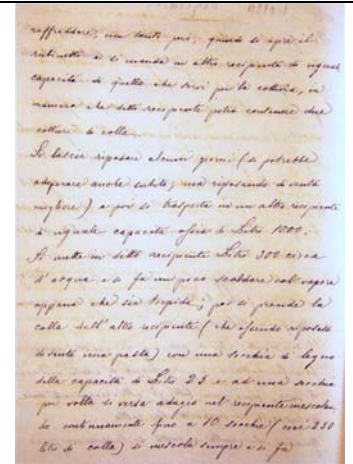 raffreddare, un tanto più, quindi si apre il
rubinetto e si manda in altro recipiente di egual
capacità di quello che servì per la cottura, in
maniera che detto recipiente potrà contenere due
cotture di colla.
Si lascia riposare alcuni giorni (si potrebbe
adoperare anche subito, ma riposando diventa
migliore) e poi si trasporta in un altro recipiente
di eguale capacità ossia di Litri 1000.
Si mette in detto recipiente Litri 300 circa
d'acqua e si fa un poco scaldare col vapore
appena che sia tiepida, poi si prende la
colla dell'altro recipiente (che essendo riposata
diventa una pasta) con una secchia di legno
della capacità di Litri 23 e ad una secchia
per volta si versa adagio nel recipiente mescolan
do continuamente fino a 10 secchie (cioè 230
litri di colla) si mescola sempre e si fa